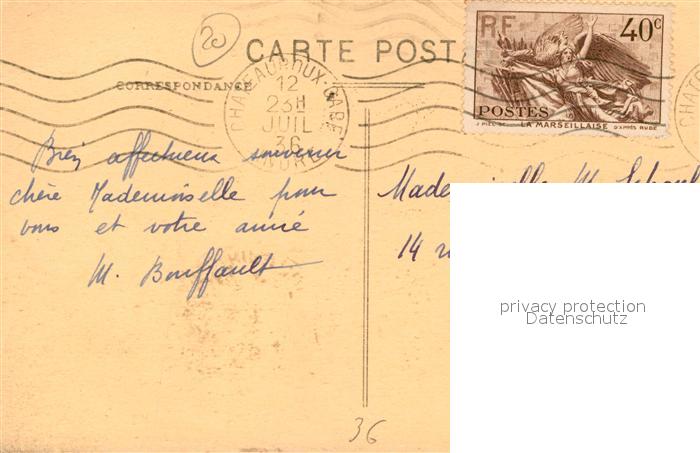 20
CARTE POST
RF 40c
POSTES
LA MARSEILLAISE D'APRÈS RUDE
CORRESPONDANCE
CHATEAUROUX-GARE
12
23H
JUIL
36
INDRE
Bien affectueux souvenir
chère Mademoiselle pour
vous et votre amie
M. Bouffault
Mademoiselle M.
14
privacy protection
Datenschutz
36